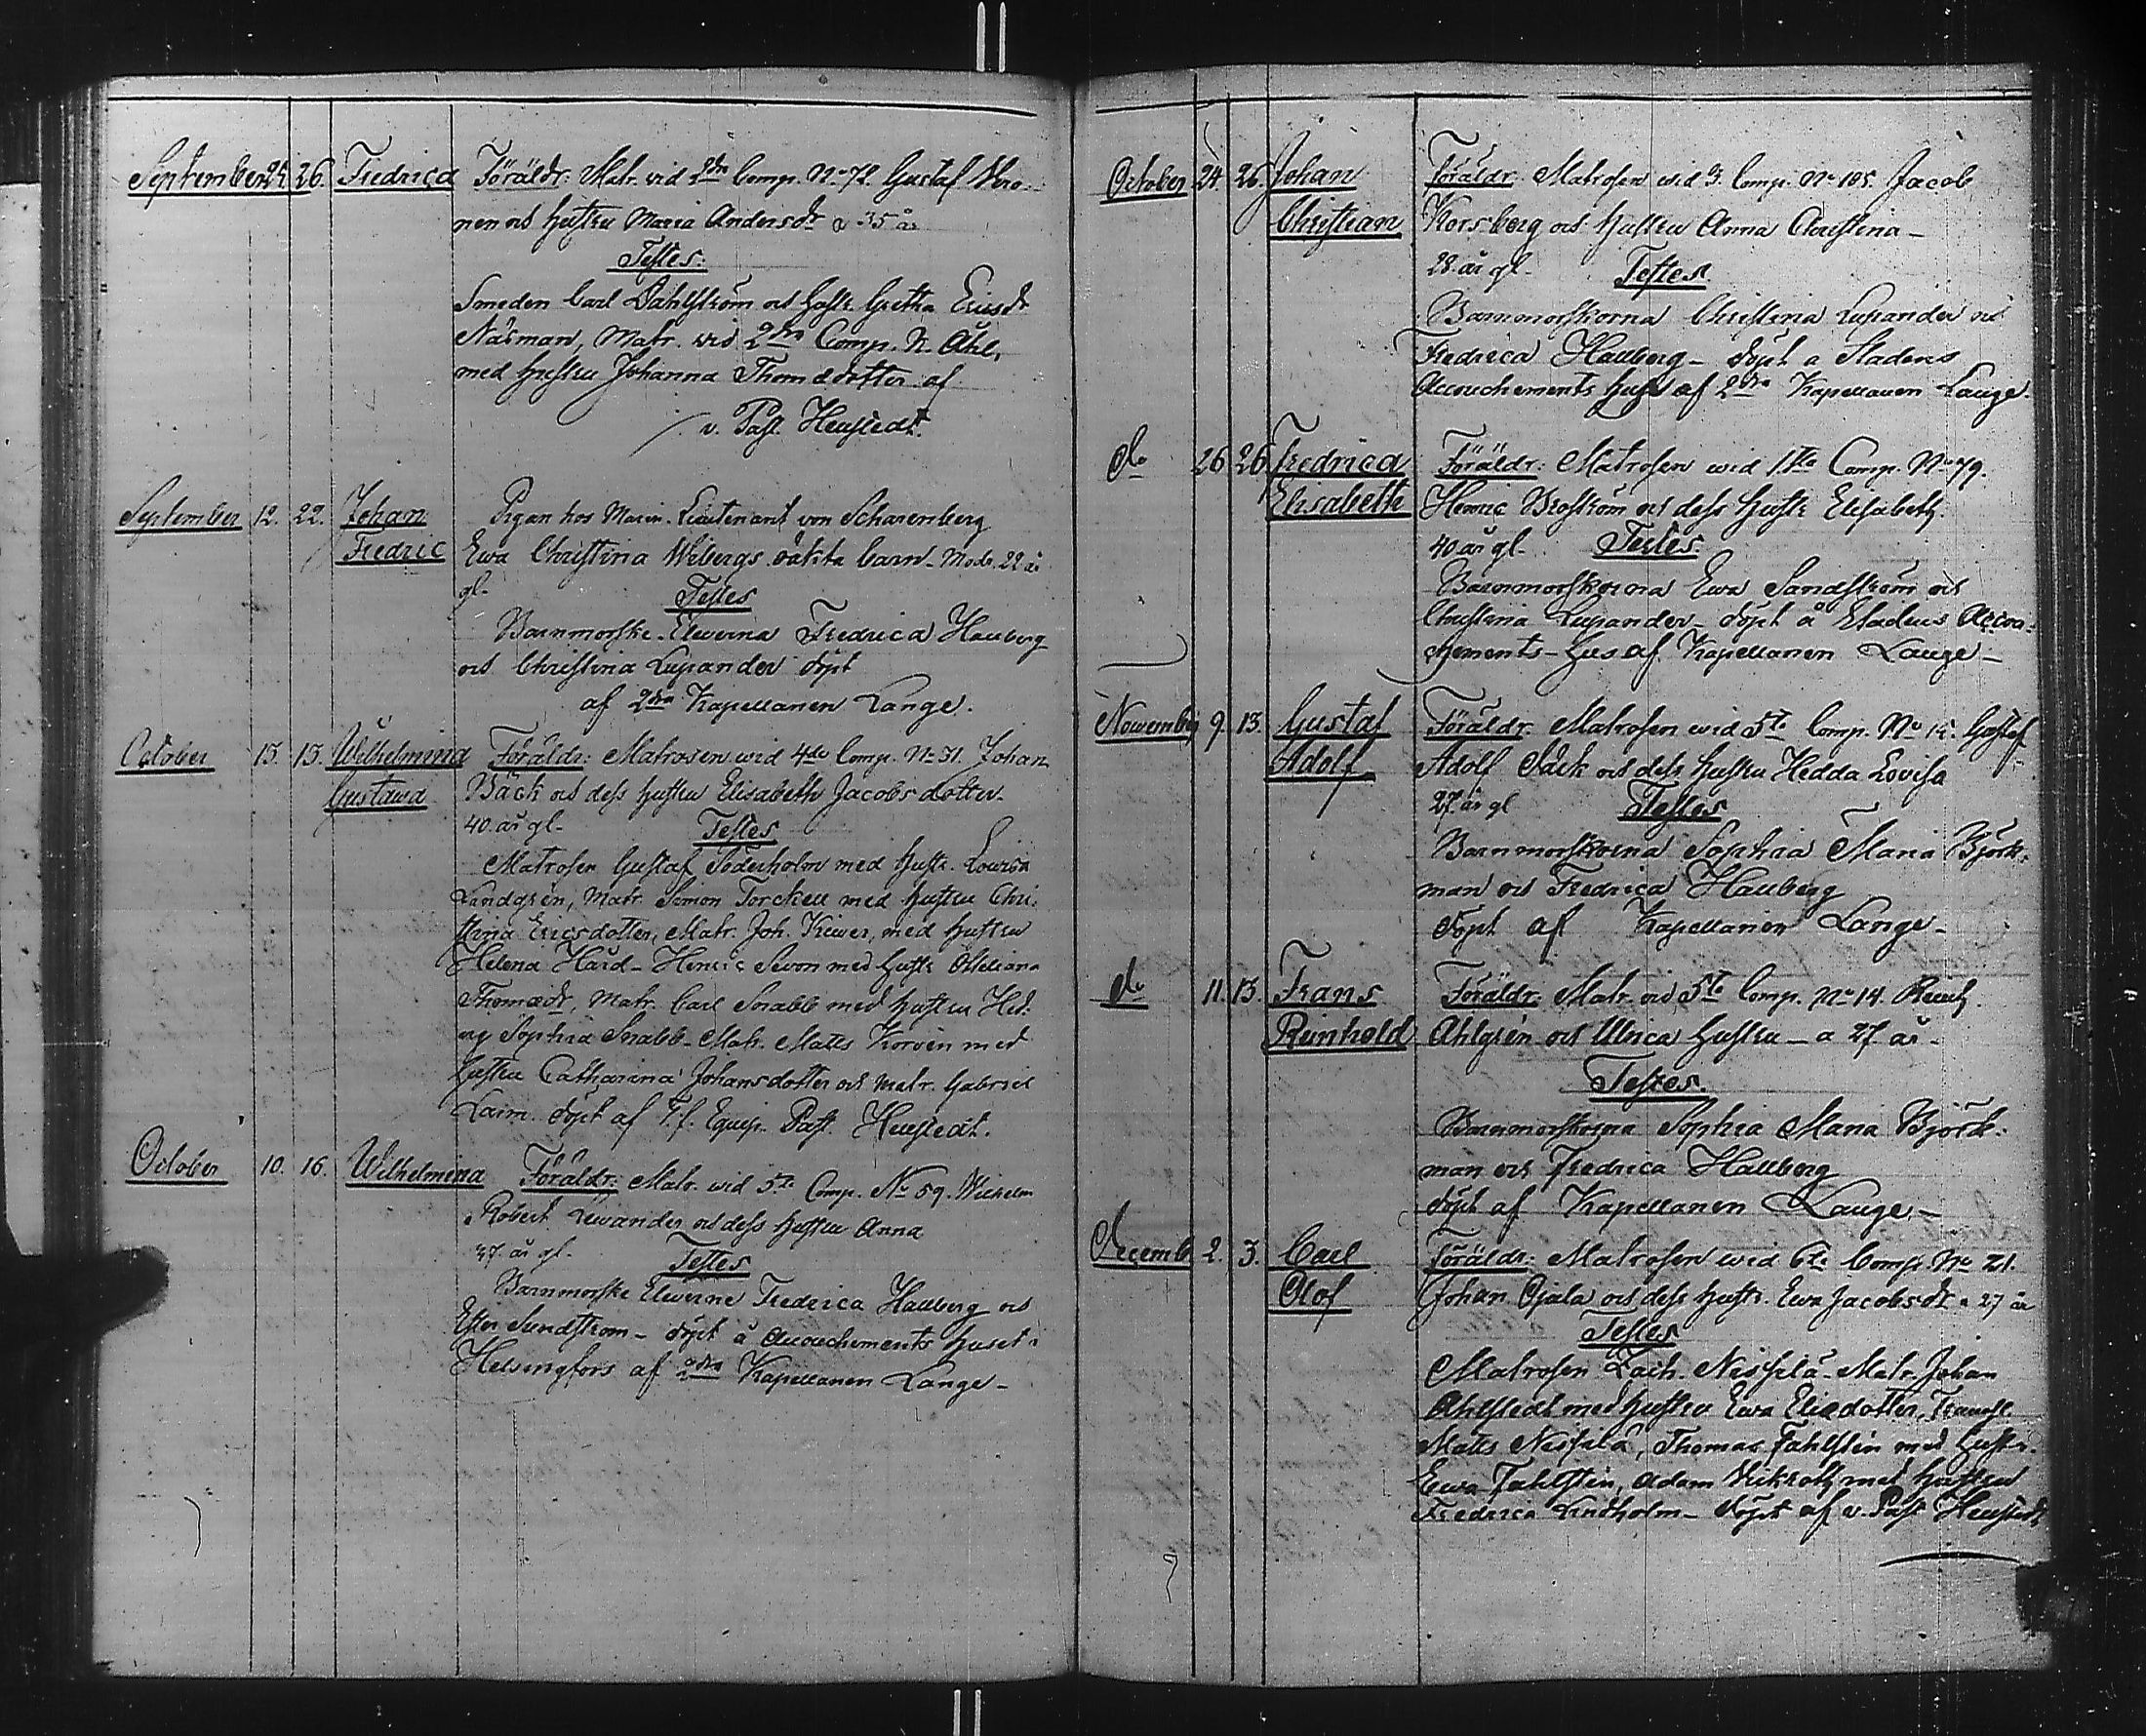 September 24. 26. Fredrica Föräldr: Matr. vid 2dra Comp. No 72. Gustaf Wro-
nen och hustru Maria Andersdr a 35 år
Testes:
Smeden Carl Dahlström och hustr. Gretha Ericsdr
Näsman, Matr. wid 2dra Comp. N. Åhl,
med hustru Johanna Thomædotter af
v. Past. Heustedt.
September 12. 22. Johan Pigan hos Marin-Lieutenant von Scharenberg
Fredric Ewa Christina Wibergs oäkta barn - Modr. 22 år
gl- Testes
Barnmorske-Elewerna Fredrica Hallberg
och Christina Lupander döpt
af 2dra Kapellanen Lange.
October 13. 13. Wilhelmina Föräldr: Matrosen wid 4de Comp. No 31. Johan
Gustava Bäck och dess hustru Elisabeth Jacobsdotter-
40. år gl- Testes
Matrosen Gustaf Söderholm med hustr. Lovisa
Landgrén, Matr. Simon Torckell med hustru Chri-
stina Ericsdotter, Matr. Joh. Kiwer, med hustru
Helena Hård - Henric Sevon med hustr.
Thomædr, Matr. Carl Snabb med hustru Hed-
vig Sophia Snabb - Matr. Matts Korvén med
hustru Catharina Johansdotter och matr. Gabriel
Laim. döpt af T.f. Equip. Past. Heustedt.
October 10. 16. Wilhelmina Föräldr: Matr. wid 5te Comp. No 59. Wilhelm
Robert Lewander och dess hustru Anna
37. år gl- Testes
Barnmorske Elewerne Fredrica Hallberg och
Ester Sundström - döpt å Accouchements huset i
Helsingfors af 2dra Kapellanen Lange-
October 24. 26. Johan Föräldr: Matrosen wid 3. Comp. No 105. Jacob
Christian Korsberg och hustru Anna Christina-
28. år gl- Testes
Barnmorskorna Christina Lupander och
Fredrica Hallberg - döpt a Stadens
Accouchements hus af 2dra Kapellanen Lange.
do 26 26 Fredrica Föräldr: Matrosen wid 1sta Comp. No 79.
Elisabeth Henric Broström och dess hustr. Elisabeth.
40 år gl- Testes:
Barnmorskorna Ewa Sandström och
Christina Lupander - döpt å Stadens Accou-
chements-hus af Kapellanen Lange-
Nowember 9. 13. Gustaf Föräldr: Matrosen wid 5te Comp. No 15. Gustaf
Adolf Adolf Säck och dess hustru Hedda Lovisa
27. år gl Testes
Barnmorskorna Sophia Maria Björk-
man och Fredrica Hallberg
döpt af Kapellanen Lange-
do 11. 13. Frans Föräldr: Matr. vid 5te Comp. No 14. Reinh.
Reinhold Ahlgrén och Ulrica hustru - a 27 år-
Testes.
Barnmorskorna Sophia Maria Björk-
man och Fredrica Hallberg
döpt af Kapellanen Lange.-
Decemb 2. 3. Carl Föräldr: Matrosen wid 6te Comp. No 21.
Olof Johan Ojala och dess hustr. Ewa Jacobsdr a 27 år
Testes
Matrosen Zach. Nissilä - Matr. Johan
Ahlstedt med hustru Ewa Eliædotter,
Matts Nissilä, Thomas Fahlstén med hustr.
Ewa Fahlstén, Adam Wikroth med hustru
Fredrica Lindholm - döpt af v. Past Heustedt